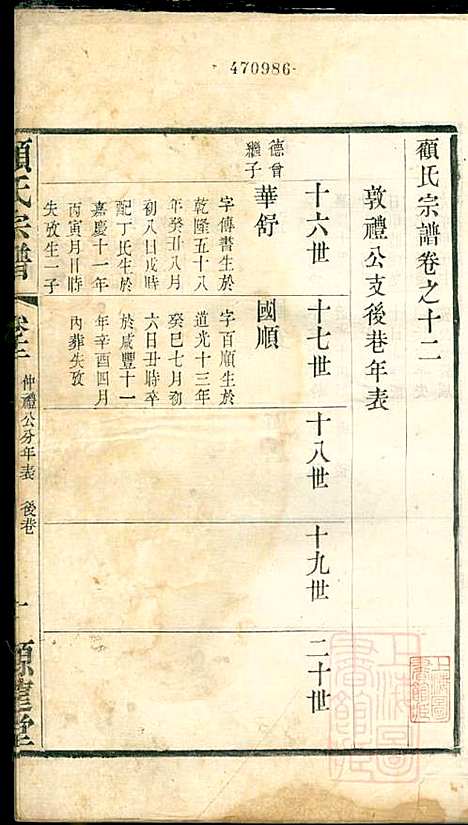 470986
顧氏宗譜卷之十二
敦禮公支後巷年表
十六世
十七世
十八世
十九世
二十世
德曾
繼子
華舒
字傳書生於
乾隆五十八
年癸丑八月
初八日戌時
配丁氏生於
嘉慶十一年
丙寅月日時
失攷生一子
國順
字百順生於
道光十三年
癸巳七月初
六日丑時卒
於咸豐十一
年辛酉四月
內葬失攷
顧氏宗譜
仲禮公分年表 後巷
一
上海圖
書館藏